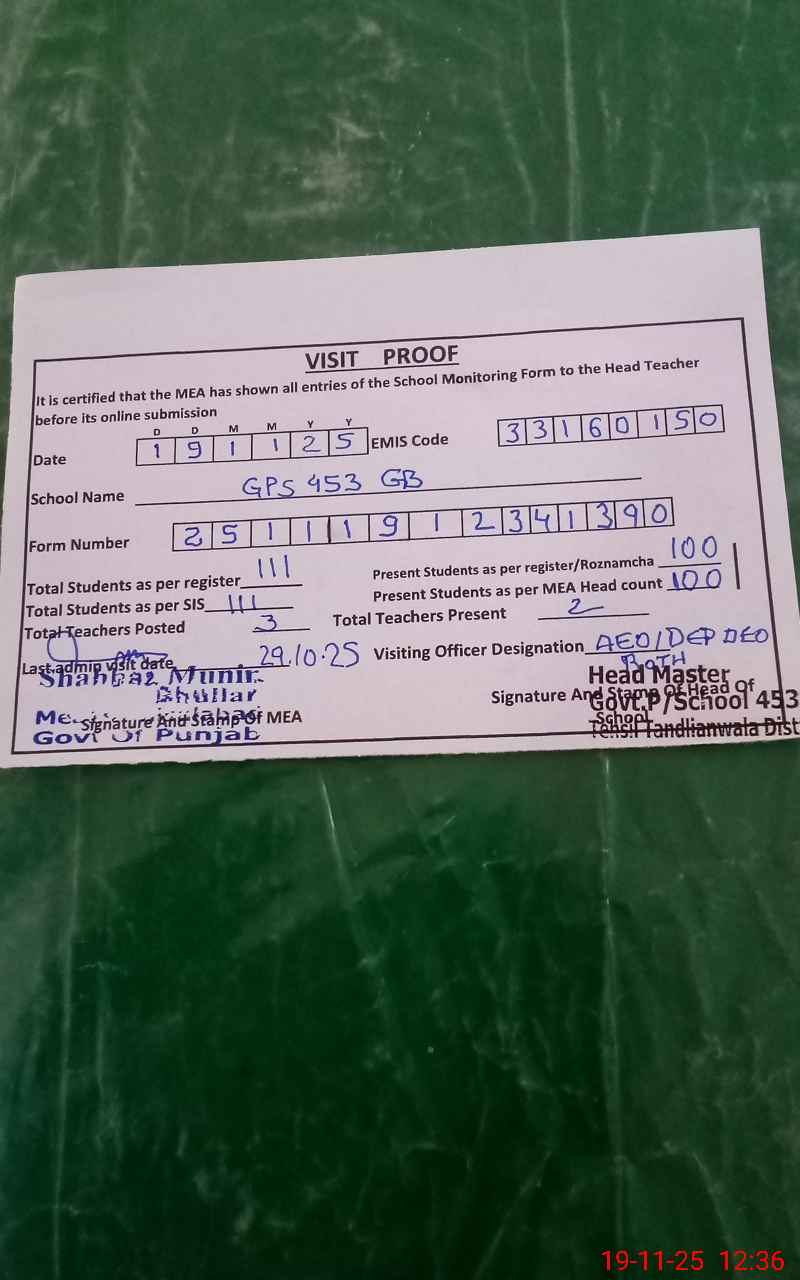 VISIT PROOF
It is certified that the MEA has shown all entries of the School Monitoring Form to the Head Teacher
before its online submission
D D M M Y Y
Date 1 9 1 1 2 5 EMIS Code 3 3 1 6 0 1 5 0
School Name GPS 453 GB
Form Number 2 5 1 1 1 9 1 2 3 4 1 3 9 0
Total Students as per register 111 Present Students as per register/Roznamcha 100
Total Students as per SIS 111 Present Students as per MEA Head count 100
Total Teachers Posted 3 Total Teachers Present 2
Last admin visit date 29.10.25 Visiting Officer Designation AEO/DEP DEO
BOTH
Shahbaz Munir Head Master
Bhullar Signature And Stamp Of Head Of
Govt.P/School 453
Signature And Stamp Of MEA School
Govt Of Punjab Tehsil Tandlianwala Dist
19-11-25 12:36